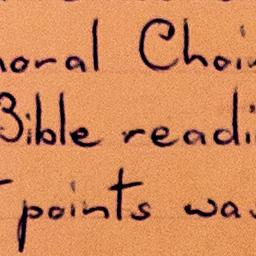 oral Choir
Bible readi
points was